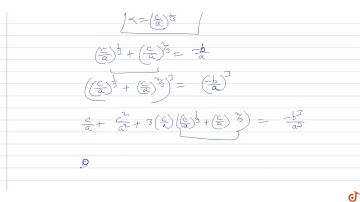 α = (c/a)^{1/3}
(c/a)^{1/3} + (c/a)^{2/3} = -b/a
((c/a)^{1/3} + (c/a)^{2/3})^3 = (-b/a)^3
c/a + c^2/a^2 + 3(c/a)((c/a)^{1/3} + (c/a)^{2/3}) = -b^3/a^3